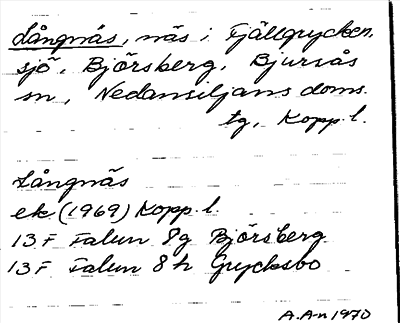 Långnäs, näs i Fjällgrycken,
sjö, Björsberg, Bjursås
sn, Nedansiljans doms.
tg, Kopp. l.
Långnäs
ek (1969) Kopp. l.
13F Falun 8g Björsberg
13F Falun 8h Grycksbo
A.A-n 1970